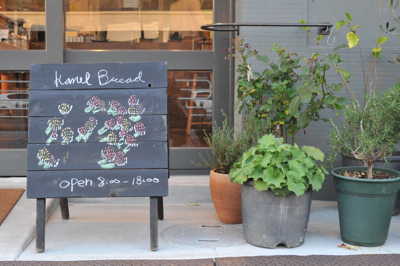 Kanel Bread
open 8:00-18:00